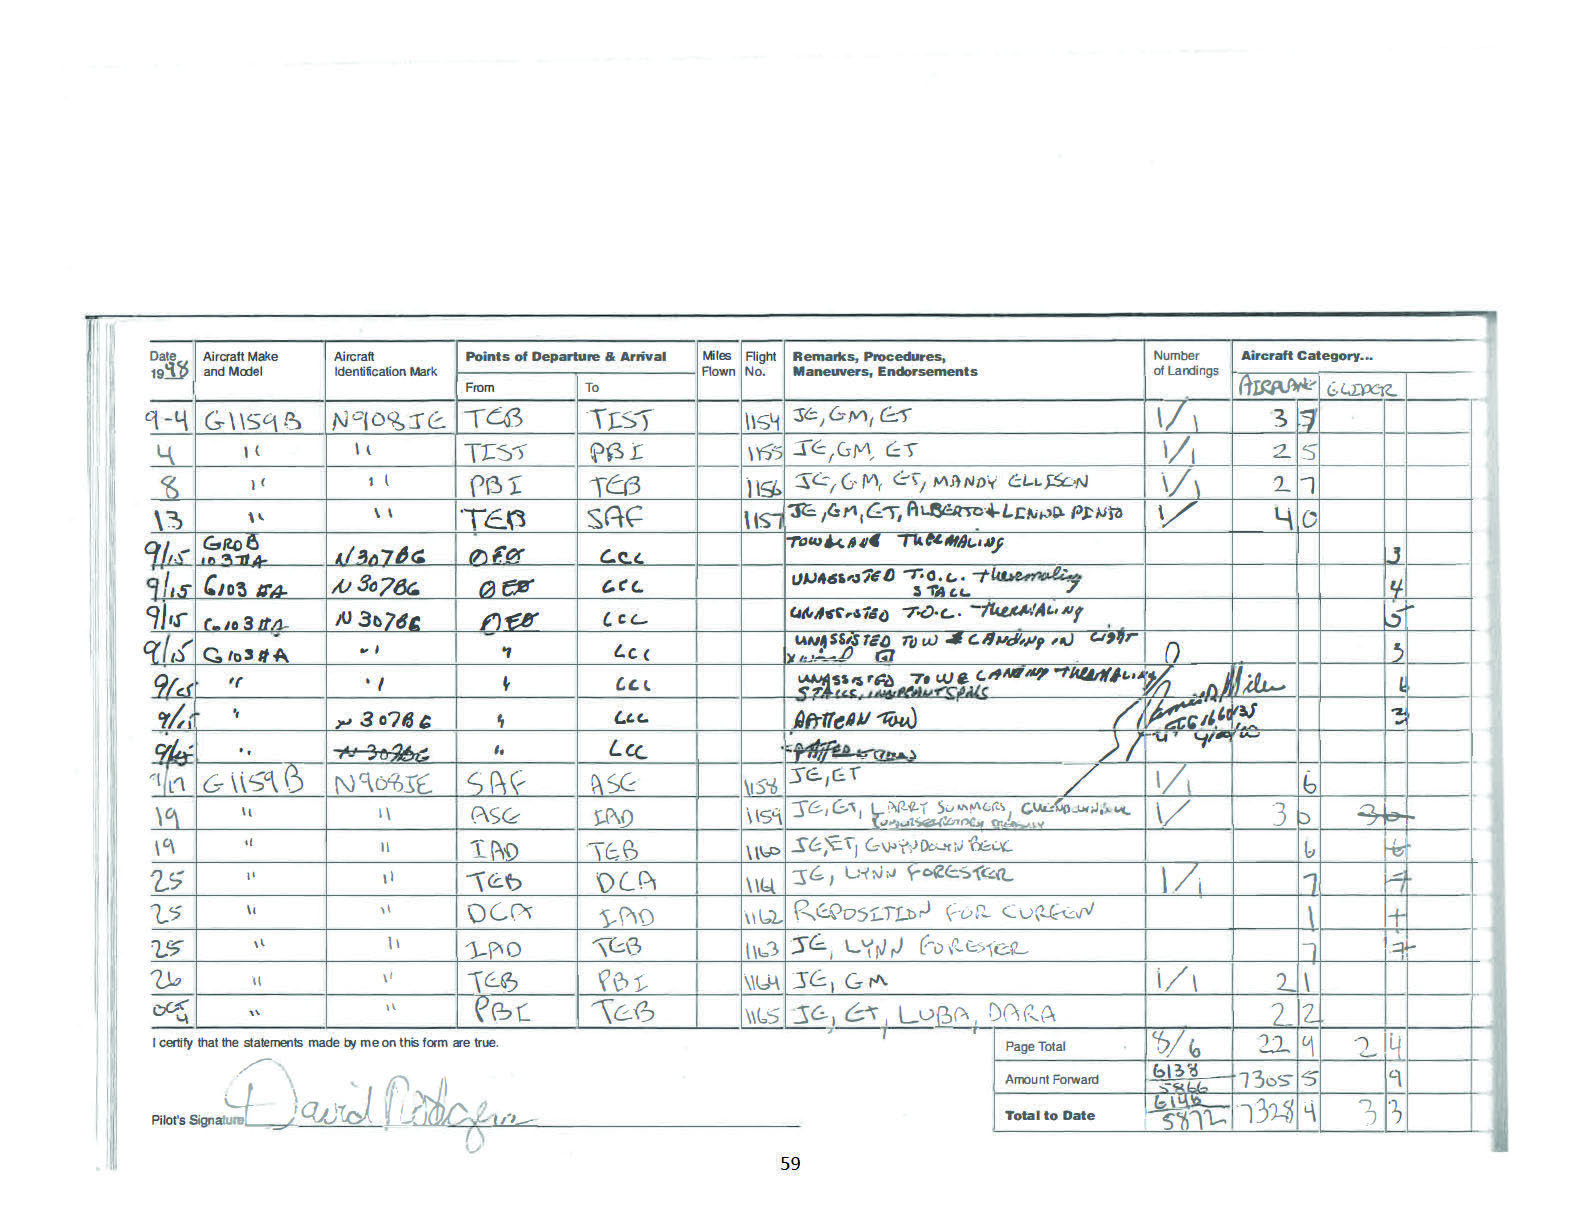 Date 1998 Aircraft Make and Model Aircraft Identification Mark Points of Departure & Arrival From To Miles Flown Flight No. Remarks, Procedures, Maneuvers, Endorsements Number of Landings Aircraft Category... AIRPLANE GLIDER
9-4 G1159B N908JE TEB TIST 1154 JE, GM, ET 1/1 3
4 " " TIST PBI 1155 JE, GM, ET 1/1 2 5
8 " " PBI TEB 1156 JE, GM, ET, MANDY ELLISON 1/1 2 7
13 " " TEB SAF 1157 JE, GM, ET, ALBERTO + LINDA PINTO 1/ 4 0
9/15 GROB 103 IIA N307BG LCC THERMALING 3
9/15 G103 IIA N307BG LCC UNASSISTED T.O.L. thermaling STALL 4
9/15 G103 IIA N307BG LCC UNASSISTED T.O.L. THERMALING 5
9/15 G103 IIA " " LCC UNASSISTED TOW & LANDING IN LIGHT 3
9/15 " " " LCC UNASSISTED TOW & LANDING THERMALING STALLS, 6
9/15 " N307BG " LCC PATTERN TOW 3
9/15 " N307BG " LCC
9/17 G1159B N908JE SAF ASE 1158 JE, ET 1/1 6
19 " " ASE IAD 1159 JE, ET, LARRY SUMMERS, 1/ 3 0 30
19 " " IAD TEB 1160 JE, ET, GWYNDOLYN BECK 6 6
25 " " TEB DCA 1161 JE, LYNN FORESTER 1/1 7 7
25 " " DCA IAD 1162 REPOSITION FOR CURFEW 1 1
25 " " IAD TEB 1163 JE, LYNN FORESTER 7 7
26 " " TEB PBI 1164 JE, GM 1/1 2 1
OCT 4 " " PBI TEB 1165 JE, ET, LUBA, DARA 2 2
I certify that the statements made by me on this form are true.
Page Total 8/6 22 9 2 4
Amount Forward 6138 5866 7305 5 9
Pilot's Signature David Rodgers
Total to Date 6146 5872 7328 4 3 3
59